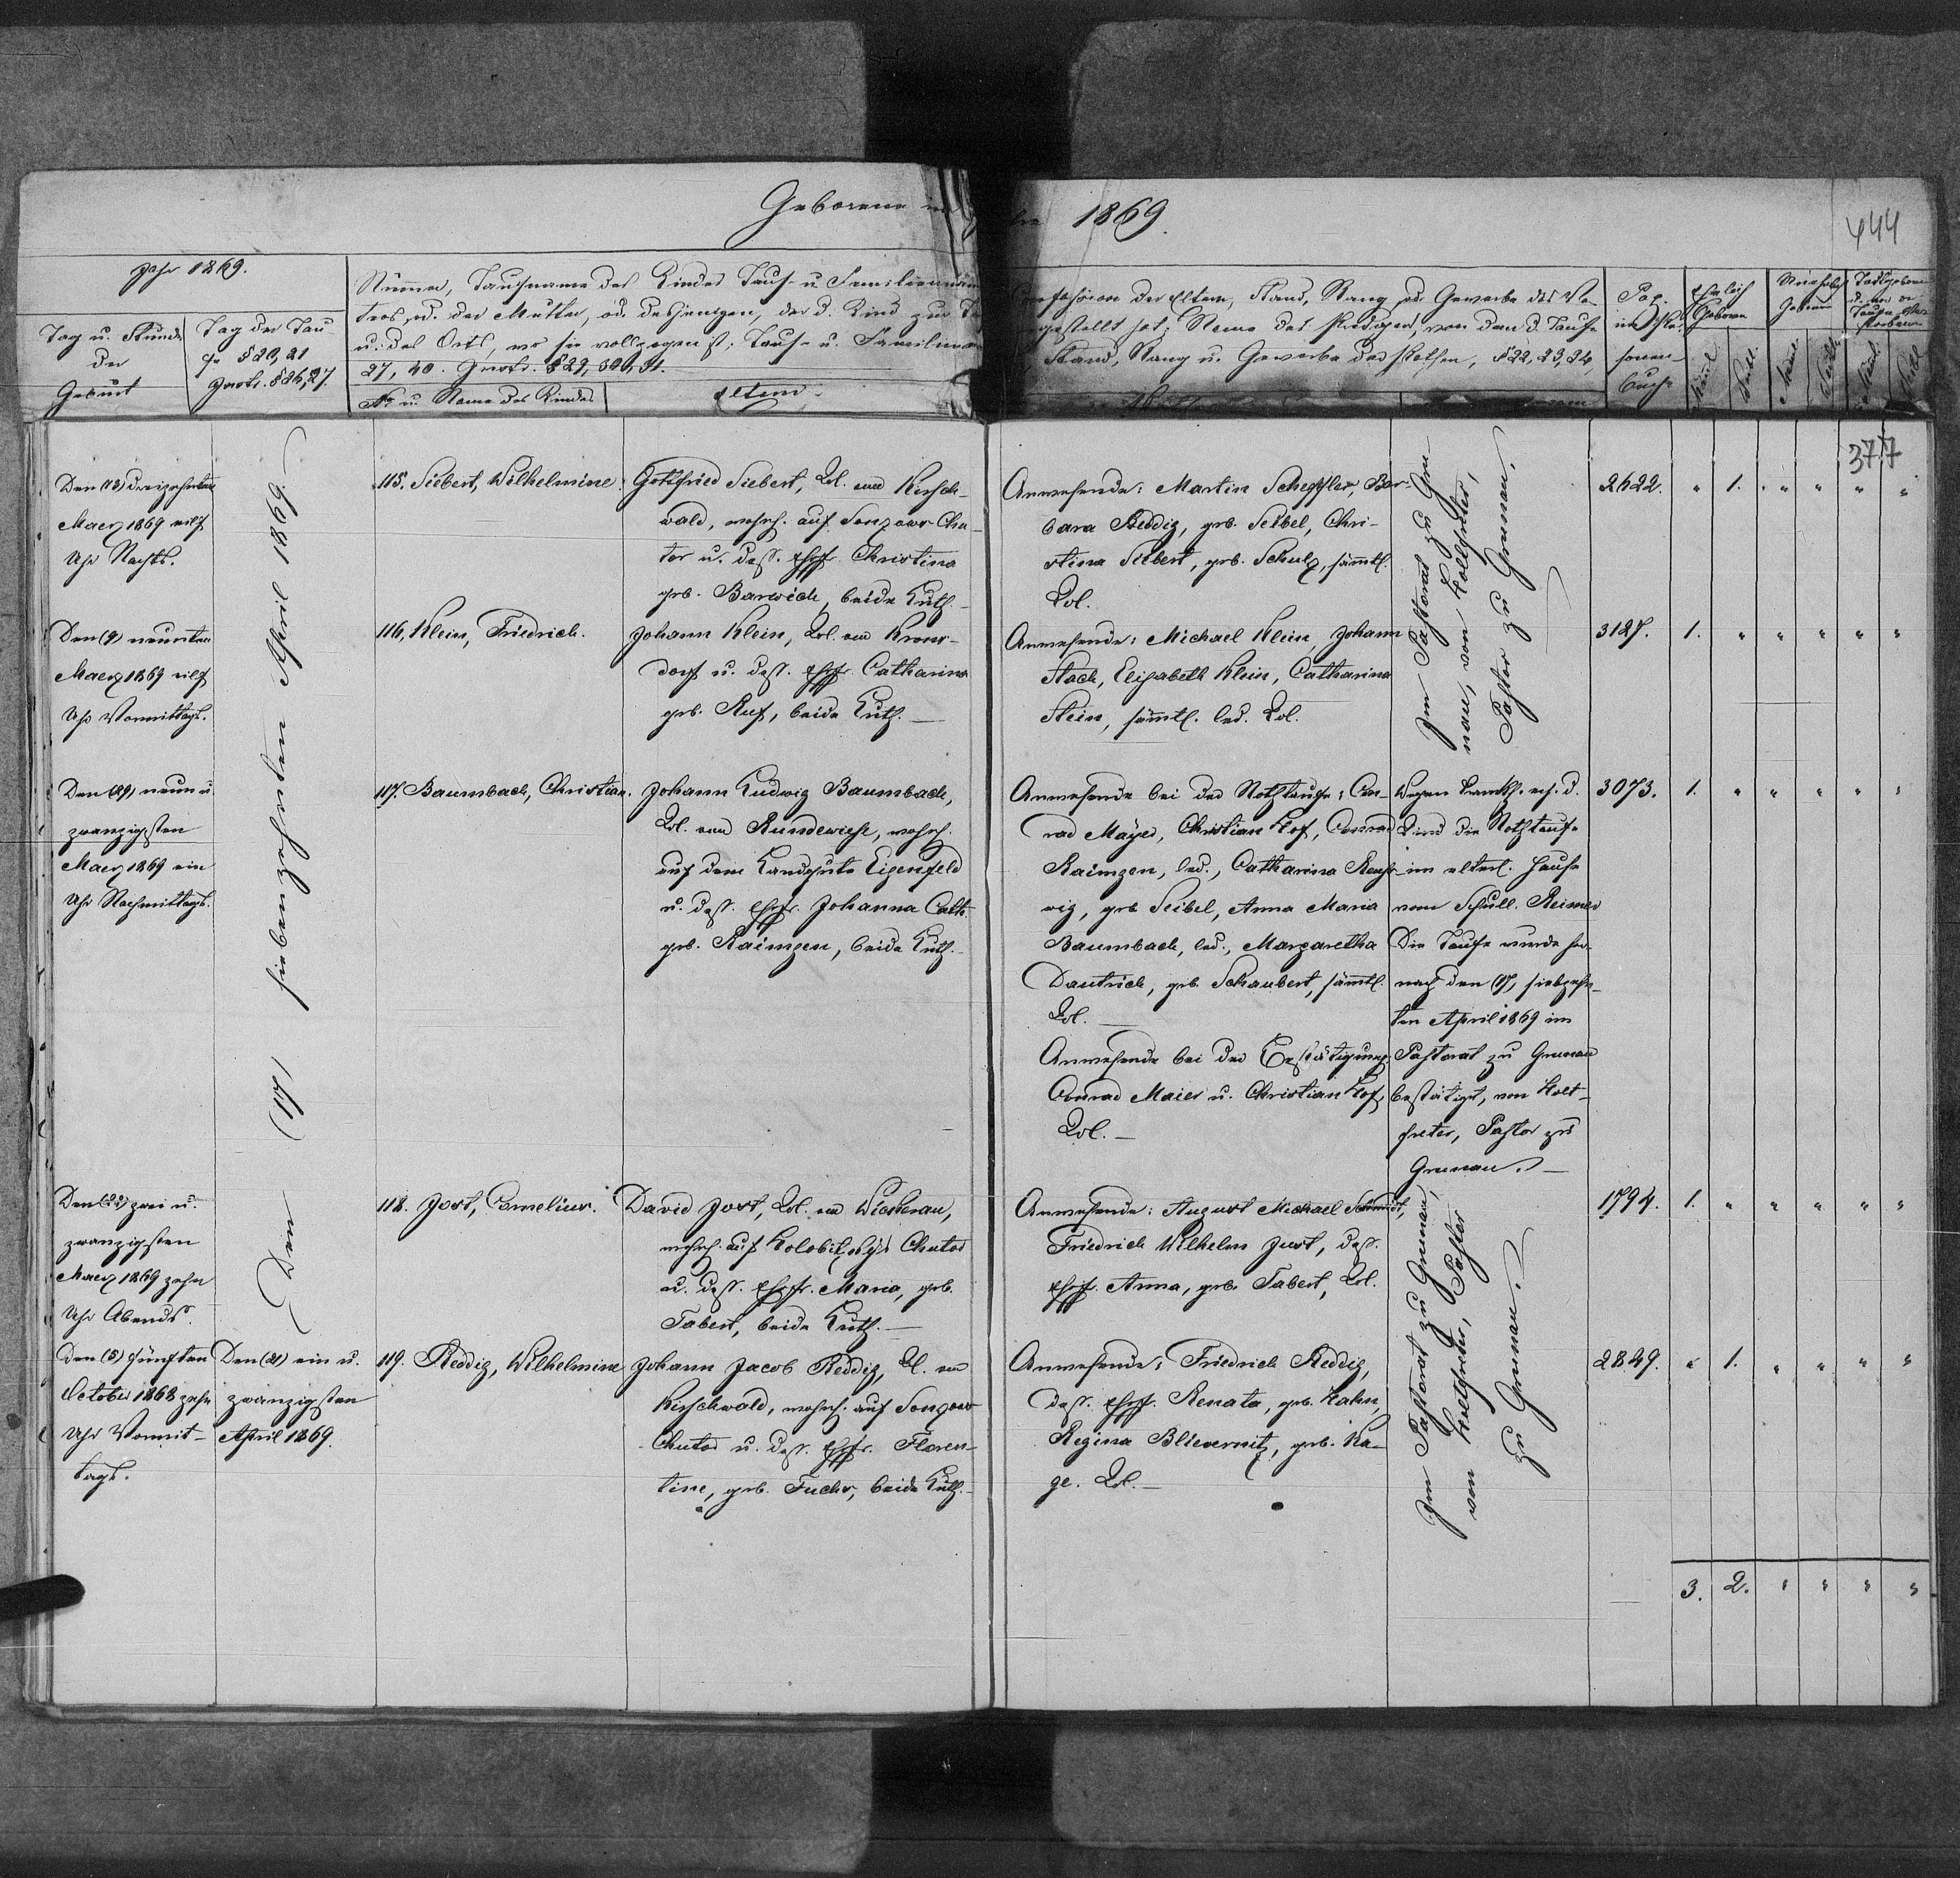 Geborene im
1869.
444
Jahr 1869.
Tag u. Stunde
der
Geburt
Tag der Tau-
fe § 20, 21
Nummer, Taufname des Kindes Tauf- u Familienname
ters od. der Mutter, od. desjenigen, der d. Kind zur
u. des Orts, wo sie vollzogen ist; Tauf- u. Familien
27, 40.
No u. Name des Kindes
Eltern.
Confession der Eltern, Stand, Rang od. Gewerbe des Va-
gestellt hat; Name des Predigers, von dem d. Taufe
Stand, Rang u. Gewerbe der Pathen, § 22, 23, 24,
Pag.
im Per-
sonen
Buche
Ehelich
Geboren
Männl.
Weibl.
377
Den (13) dreizehnten
Maerz 1869 eilf
Uhr Nachts.
Den (17) siebenzehnten April 1869.
115. Siebert, Wilhelmine.
Gottfried Siebert, Col. aus Kirsch-
wald, wohnh. auf Sonzows Chu-
tor u. dess. Ehefr. Christina
geb. Barwich, beide Luth.
Anwesende: Martin Scheffler, Bar-
bara Reddig, geb. Seibel, Chri-
stina Siebert, geb. Schulz, sämtl.
Col.
Im Pastorat zu Gru-
nau, von Holtfreter,
Pastor zu Grunau.
2622. " 1. " " " "
Den (9) neunten
Maerz 1869 eilf
Uhr Vormittags.
116, Klein, Friedrich.
Johann Klein, Col. aus Krons-
dorf u. dess. Ehefr. Catharina
geb. Ruf, beide Luth.
Anwesende: Michael Klein, Johann
Stach, Elisabeth Klein, Catharina
Stein, sämtl. led. Col.
3127. 1. " " " " "
Den (29) neun u.
zwanzigsten
Maerz 1869 ein
Uhr Nachmittags.
117. Baumbach, Christian.
Johann Ludwig Baumbach,
Col. aus Rundewiese, wohnh.
auf dem Landgute Eigenfeld
u. dess. Ehefr. Johanna Cath.
geb. Raimgen, beide Luth.
Anwesende bei der Nothtaufe: Con-
rad Mayer, Christian Hof, Conrad
Raimgen, led., Catharina
wig, geb. Seibel, Anna Maria
Baumbach, led., Margaretha
Dautrich, geb. Schaubert, sämtl.
Col.
Anwesende bei der Bestätigung
Conrad Maier u. Christian Hof,
Col.
Wegen Krankh. erh. d.
Kind die Nothtaufe
im elterl. Hause
vom Schull. Reimer
Die Taufe wurde her-
nach den (17) siebzehn-
ten April 1869 im
Pastorat zu Grunau
bestätigt, von Holt-
freter, Pastor zu
Grunau.
3073. 1. " " " " "
Den (22) zwei u.
zwanzigsten
Maerz 1869 zehn
Uhr Abends.
118. Jost, Cornelius.
David Jost, Col. aus Wickerau,
wohnh. auf Chutor
u. dess. Ehefr. Maria, geb.
Tabert, beide Luth.
Anwesende: August Michael Schmidt,
Friedrich Wilhelm Just, dess.
Ehefr. Anna, geb. Tabert, Col.
Im Pastorat zu Grunau,
von Holtfreter, Pastor
zu Grunau.
1794. 1. " " " " "
Den (5) fünften
October 1868 zehn
Uhr Vormit-
tags.
Den (21) ein u.
zwanzigsten
April 1869.
119. Reddig, Wilhelmine
Johann Jacob Reddig, C. aus
Kirschwald, wohnh. auf Sonzows
Chutor u. dess. Ehefr. Floren-
tine, geb. Fuchs, beide Luth.
Anwesende: Friedrich Reddig,
dess. Ehefr. Renata, geb. Hahn,
Regina Blievernitz, geb. Ha-
ge. Col.
2849. " 1. " " " "
3. 2. " " " "